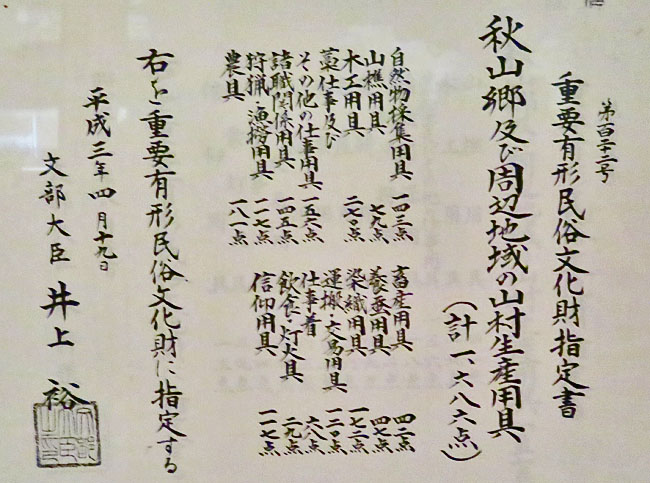 重要有形民俗文化財指定書
秋山郷及び周辺地域の山村生産用具
(計一、六八六点)
自然物採集用具 一四三点
山樵用具 七九点
木工用具 二七〇点
藁仕事及び
その他の仕事用具 一五六点
諸職関係用具 一四五点
狩猟・漁撈用具 一一七点
農具 一八一点
畜産用具 四二点
養蚕用具 四七点
染織用具 一七二点
運搬・交易用具 一二〇点
仕事着 六八点
飲食・灯火具 二九点
信仰用具 一一七点
右を重要有形民俗文化財に指定する
平成三年四月十九日
文部大臣 井上 裕